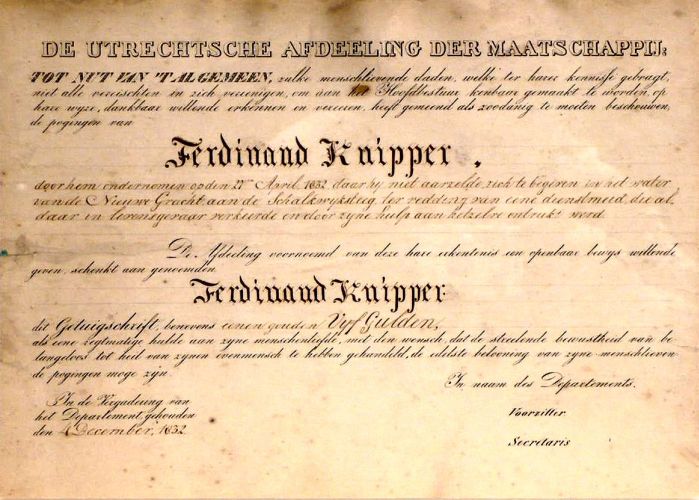 DE UTRECHTSCHE AFDEELING DER MAATSCHAPPIJ:
TOT NUT VAN 'T ALGEMEEN, zulke menschlievende daden, welke ter harer kennisse gebragt,
niet alle vereischten in zich vereenigen, om aan het Hoofdbestuur kenbaar gemaakt te worden, op
hare wyze, dankbaar willende erkennen en vereeren, heeft gemeend als zoodanig te moeten beschouwen,
de pogingen van
Ferdinand Knipper,
door hem ondernomen op den 27 April, 1832, daar hy niet aarzelde, zich te begeven in het water
van de Nieuwe Gracht aan de Schalkwijksteeg ter redding van eene dienstmeid, die al,
daar in levensgevaar verkeerde en door zyne hulp aan hetzelve ontrukt werd.
De Afdeeling voornoemd van deze hare erkentenis een openbaar bewys willende
geven, schenkt aan genoemden
Ferdinand Knipper
dit Getuigschrift, benevens eenen gouden Vyf Gulden,
als eene regtmatige hulde aan zyne menschenliefde, met den wensch, dat de streelende bewustheid van be
langeloos tot heil van zynen evenmensch te hebben gehandeld, de edelste belooning van zyne menschlieven
de pogingen moge zyn.
In de Vergadering van
het Departement, gehouden
den 4 December, 1832.
In naam des Departements.
Voorzitter
Secretaris